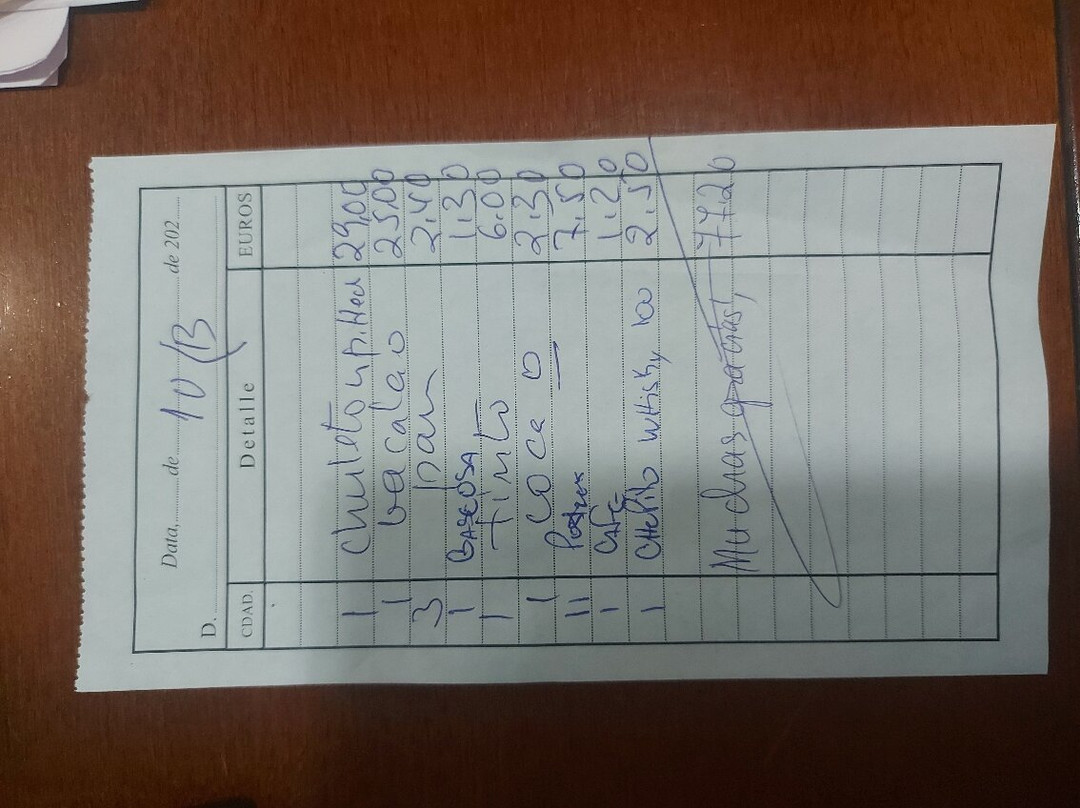 Data, ........ de 10 (B ........ de 202
D.
CDAD. Detalle EUROS
1 chuleton p. Hed 29,00
1 bacalao 25,00
3 pan 2.40
1 GASEOSA 1.30
1 tinto 6.00
1 coca 0 2.30
11 Postres 7.50
1 CAFE 1.20
1 CHUPITO WHISKY 100 2.50
Muchas gracias, 77.20